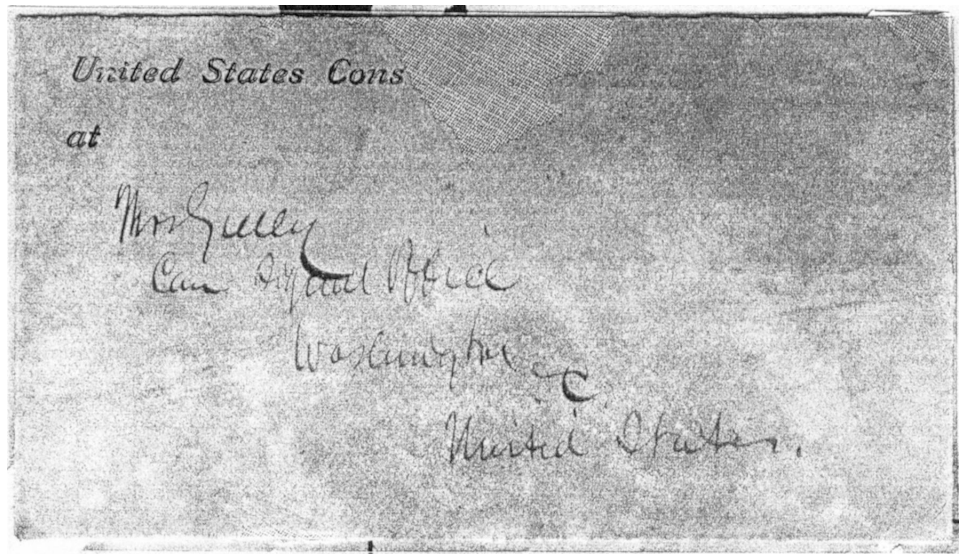 United States Cons
at
Mrs Greely
Care Signal Office
Washington
United States.